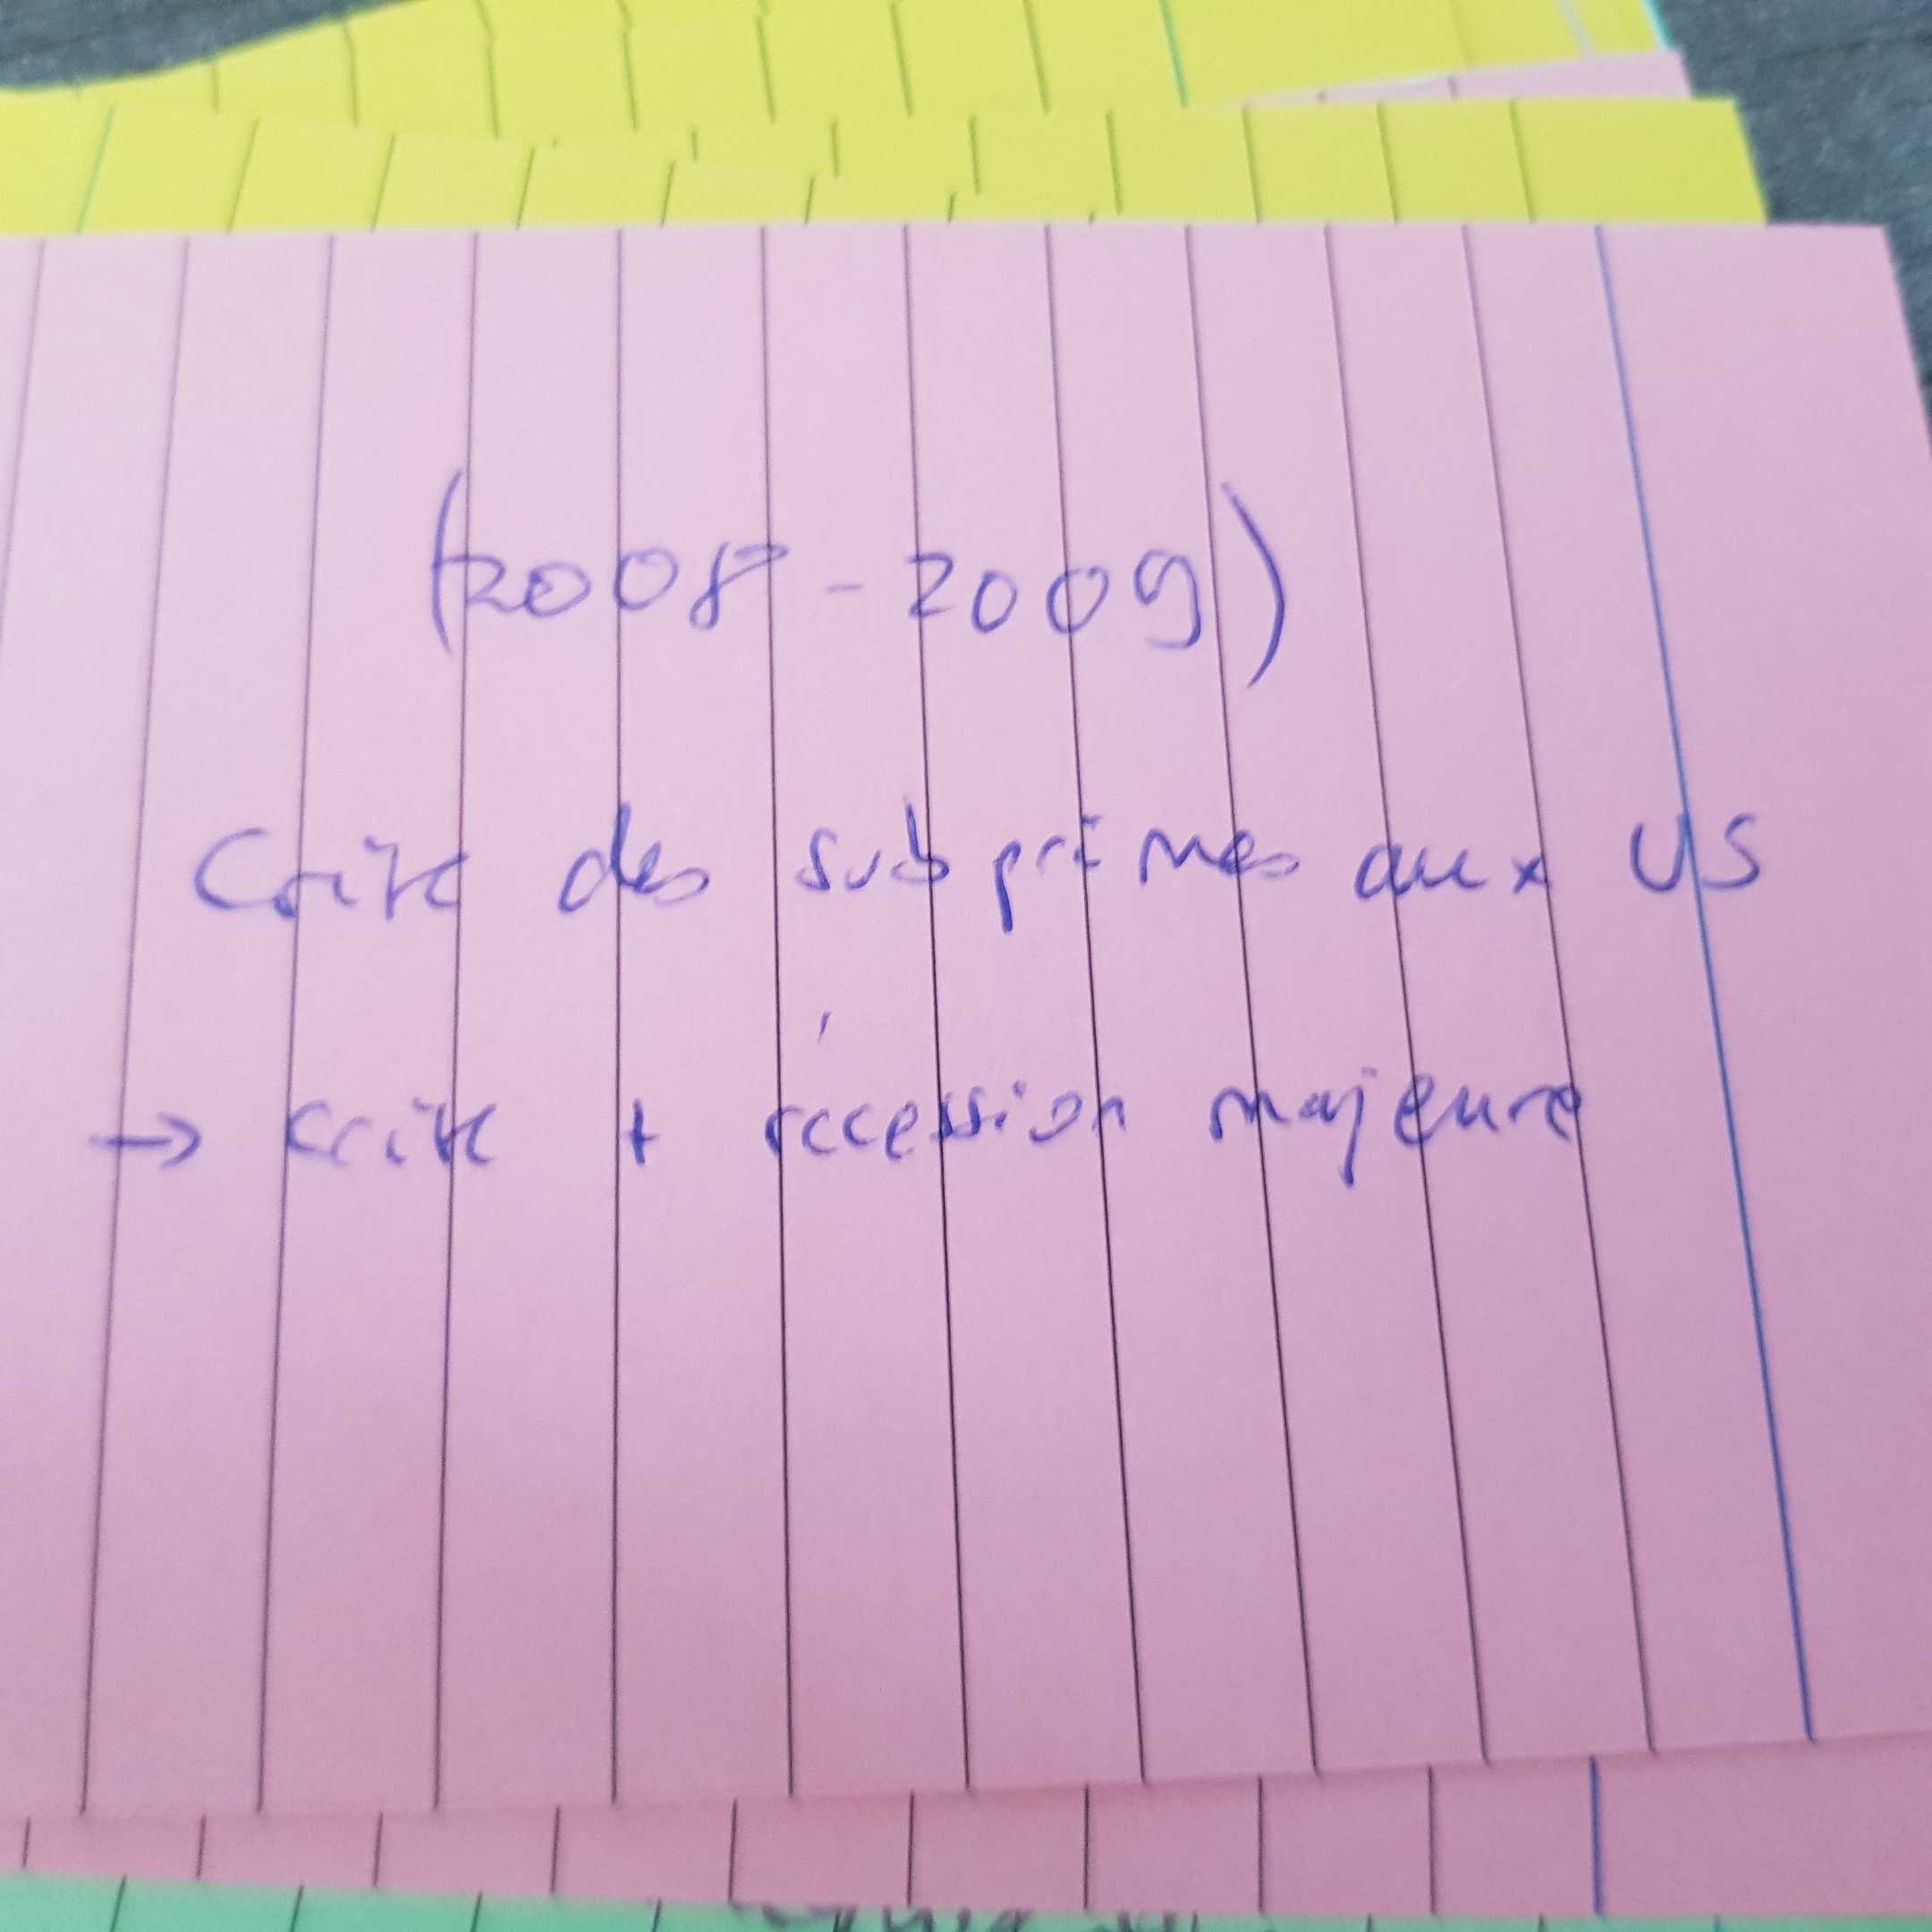 (2008 - 2009)
Crise des subprimes aux US
→ crise + récession majeure